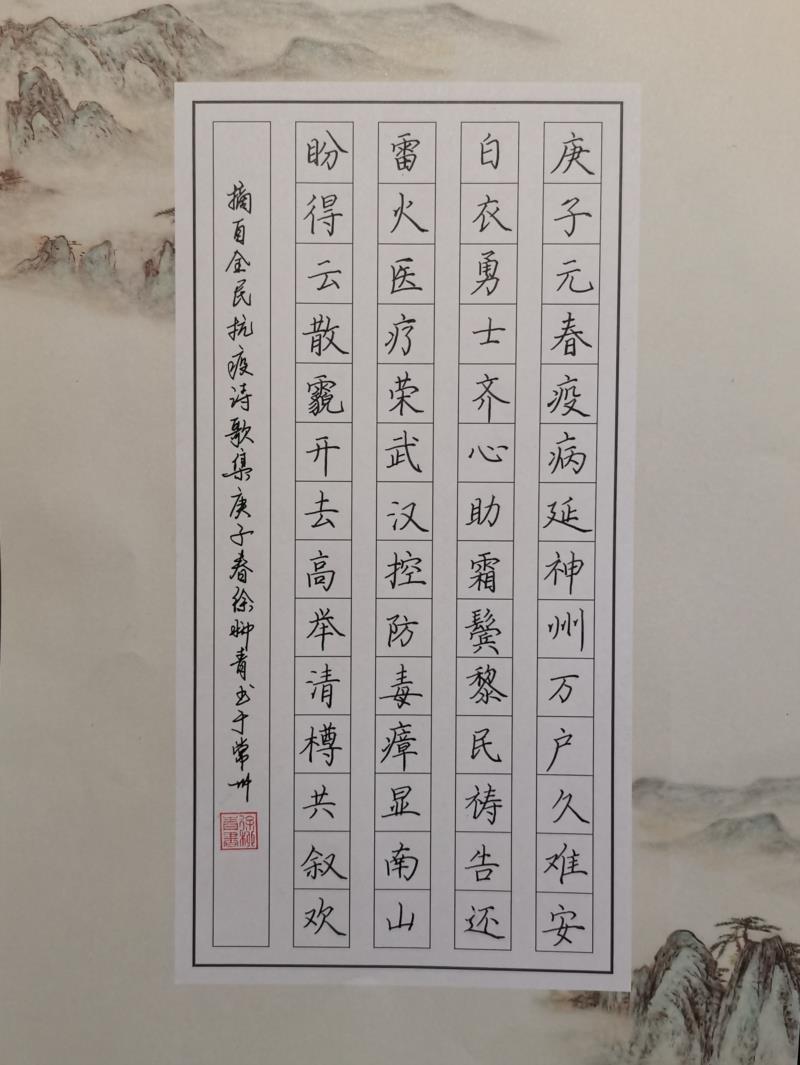 庚子元春疫病延神州万户久难安
白衣勇士齐心助霜鬓黎民祷告还
雷火医疗荣武汉控防毒瘴显南山
盼得云散霾开去高举清樽共叙欢
摘自全民抗疫诗歌集庚子春徐柳青书于常州